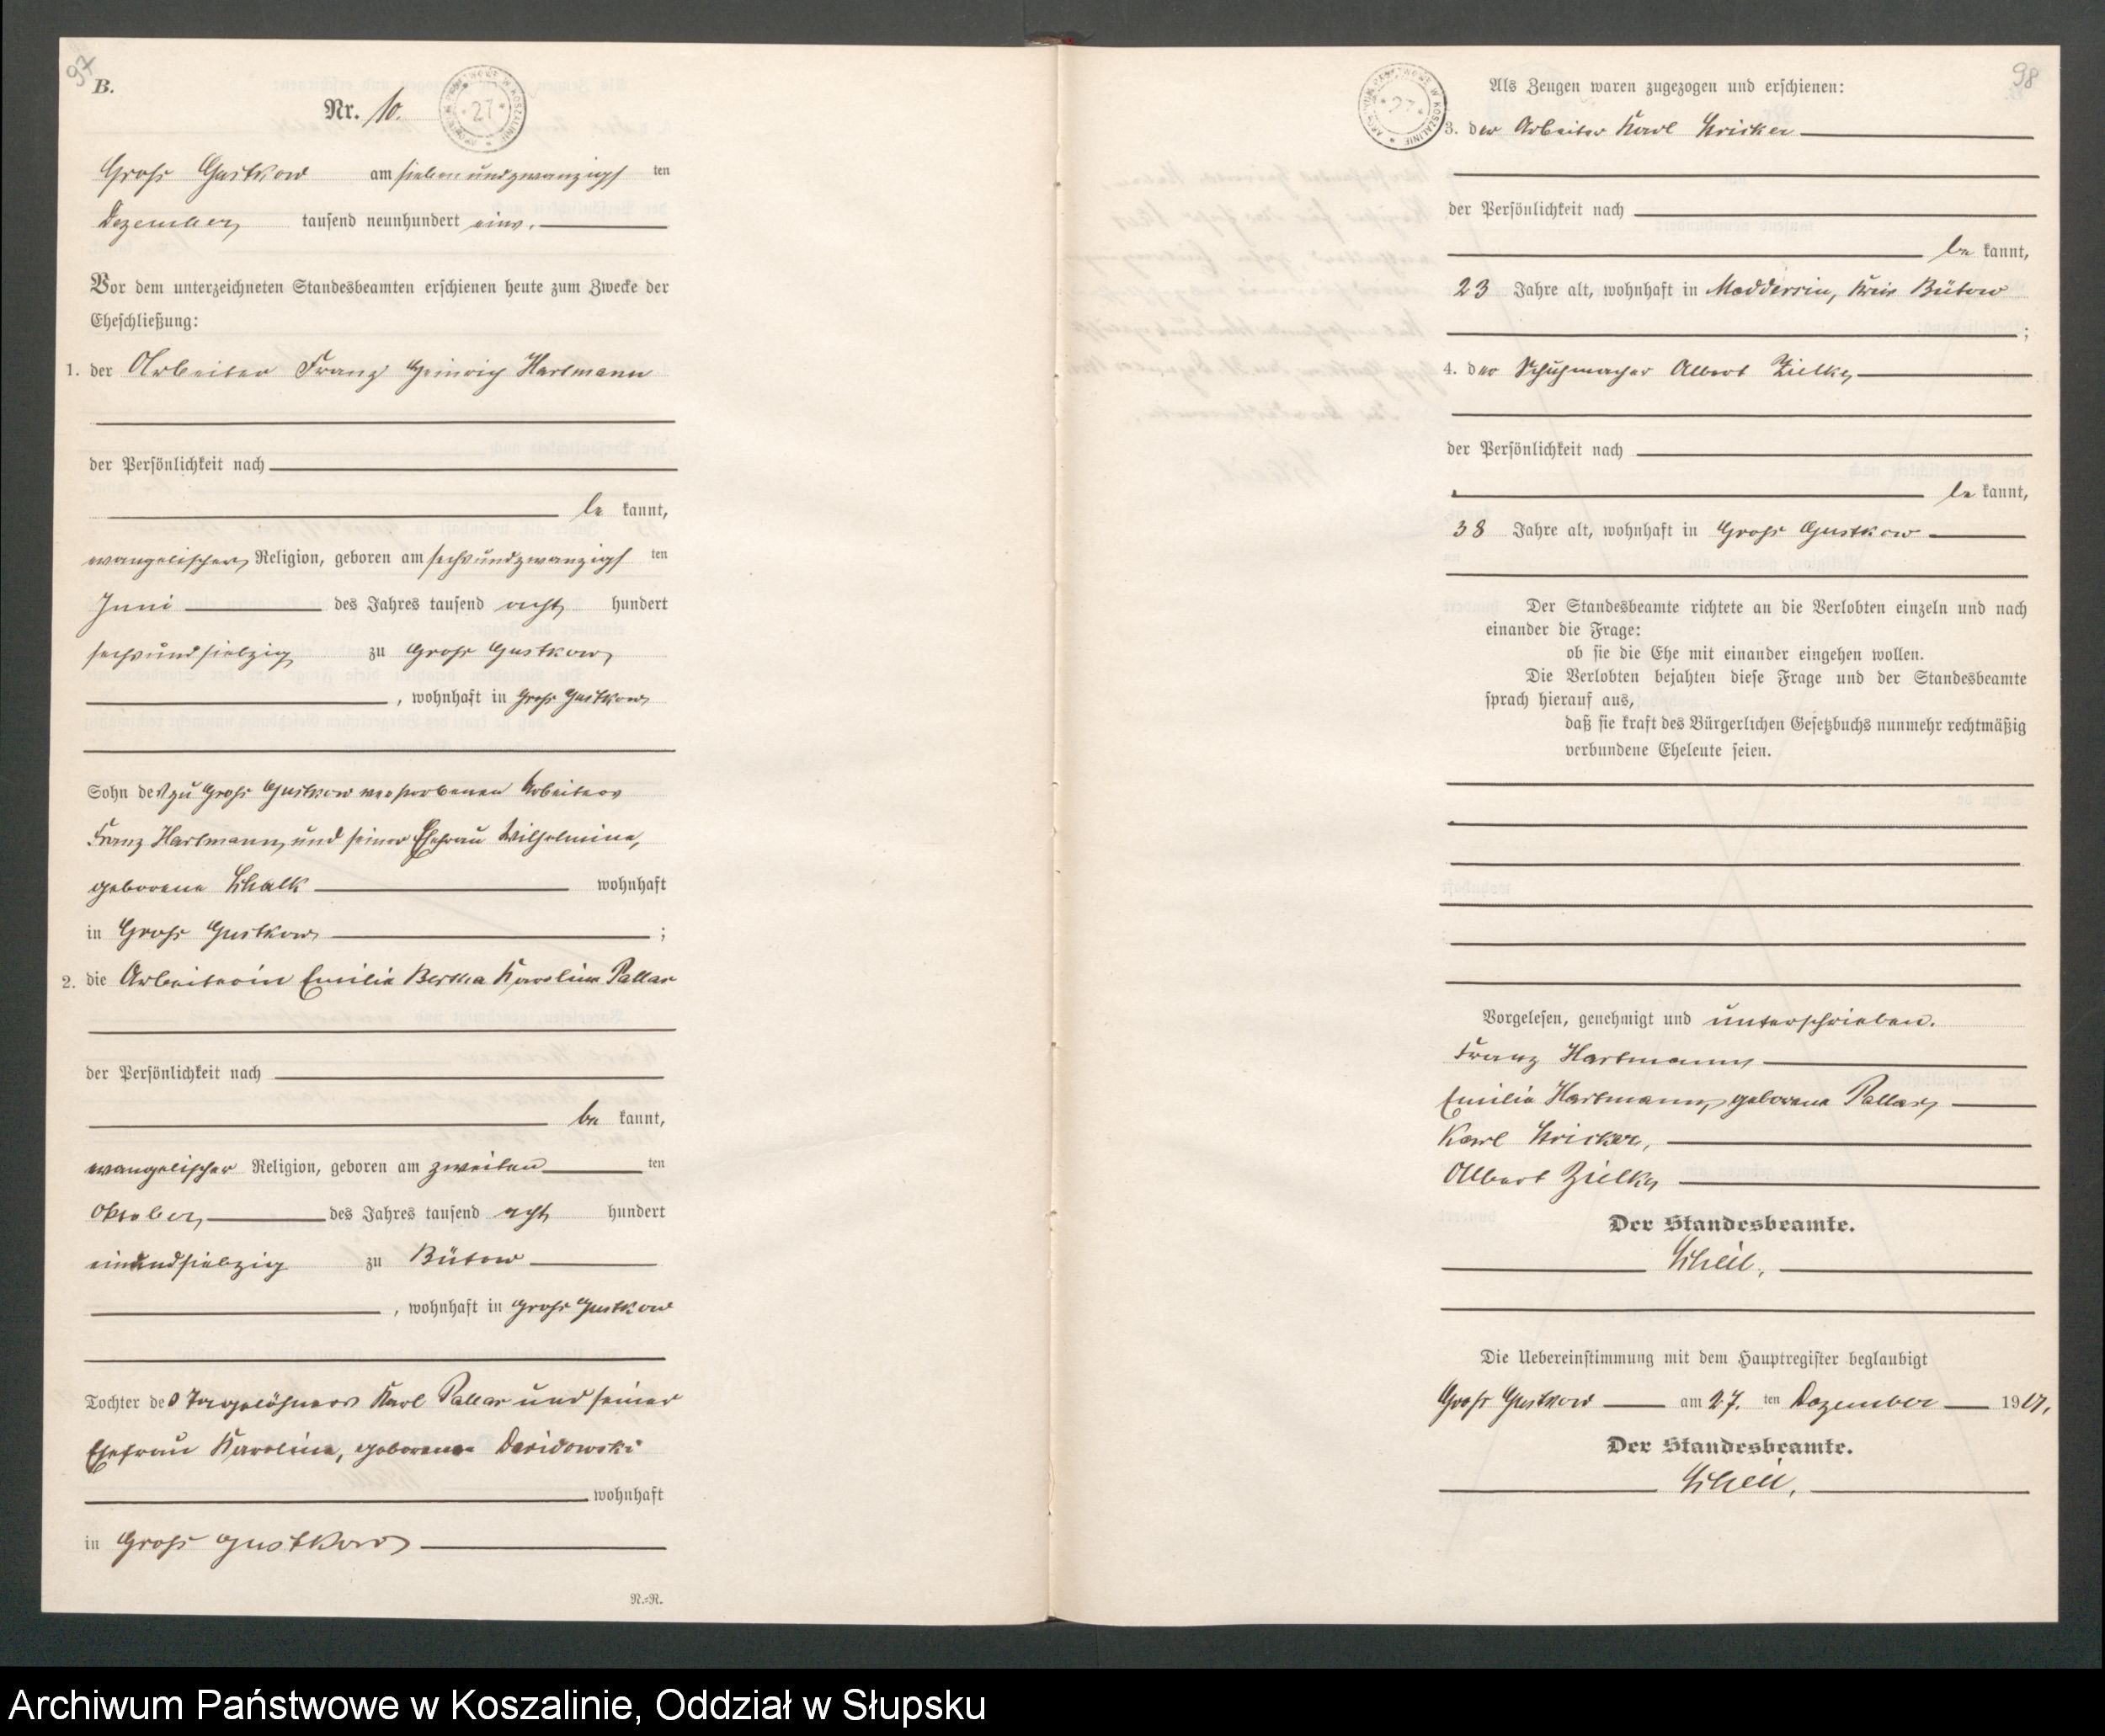 97
B.
Nr. 10.
Groß Gustkow am siebenundzwanzigs ten
Dezember tausend neunhundert eins.
Vor dem unterzeichneten Standesbeamten erschienen heute zum Zwecke der
Eheschließung:
1. der Arbeiter Franz Heinrich Hartmann
der Persönlichkeit nach
be kannt,
evangelischer Religion, geboren am sechsundzwanzigs ten
Juni des Jahres tausend acht hundert
sechsundsiebzig zu Groß Gustkow
, wohnhaft in Groß Gustkow
Sohn des zu Groß Gustkow verstorbenen Arbeiters
Franz Hartmann und seiner Ehefrau Wilhelmine,
geborene Schalk wohnhaft
in Groß Gustkow ;
2. die Arbeiterin Emilie Bertha Karoline Pallas
der Persönlichkeit nach
be kannt,
evangelischer Religion, geboren am zweiten ten
Oktober des Jahres tausend acht hundert
einundsiebzig zu Bütow
, wohnhaft in Groß Gustkow
Tochter des Tagelöhners Karl Pallas und seiner
Ehefrau Karoline, geborene Davidowski
wohnhaft
in Groß Gustkow
N.-R.
98
Als Zeugen waren zugezogen und erschienen:
3. der Arbeiter Karl
der Persönlichkeit nach
be kannt,
23 Jahre alt, wohnhaft in Modderrin, Kreis Bütow
;
4. der Schuhmacher Albert Zielke
der Persönlichkeit nach
be kannt,
38 Jahre alt, wohnhaft in Groß Gustkow
Der Standesbeamte richtete an die Verlobten einzeln und nach
einander die Frage:
ob sie die Ehe mit einander eingehen wollen.
Die Verlobten bejahten diese Frage und der Standesbeamte
sprach hierauf aus,
daß sie kraft des Bürgerlichen Gesetzbuchs nunmehr rechtmäßig
verbundene Eheleute seien.
Vorgelesen, genehmigt und unterschrieben.
Franz Hartmann
Emilie Hartmann, geborene Pallas,
Karl
Albert Zielke
Der Standesbeamte.
Scheil.
Die Uebereinstimmung mit dem Hauptregister beglaubigt
Groß Gustkow am 27. ten Dezember 1901.
Der Standesbeamte.
Scheil.
Archiwum Państwowe w Koszalinie, Oddział w Słupsku